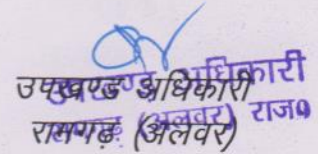 उपखण्ड अधिकारी
रामगढ़ (अलवर)
उपखण्ड अधिकारी
(अलवर) राज०